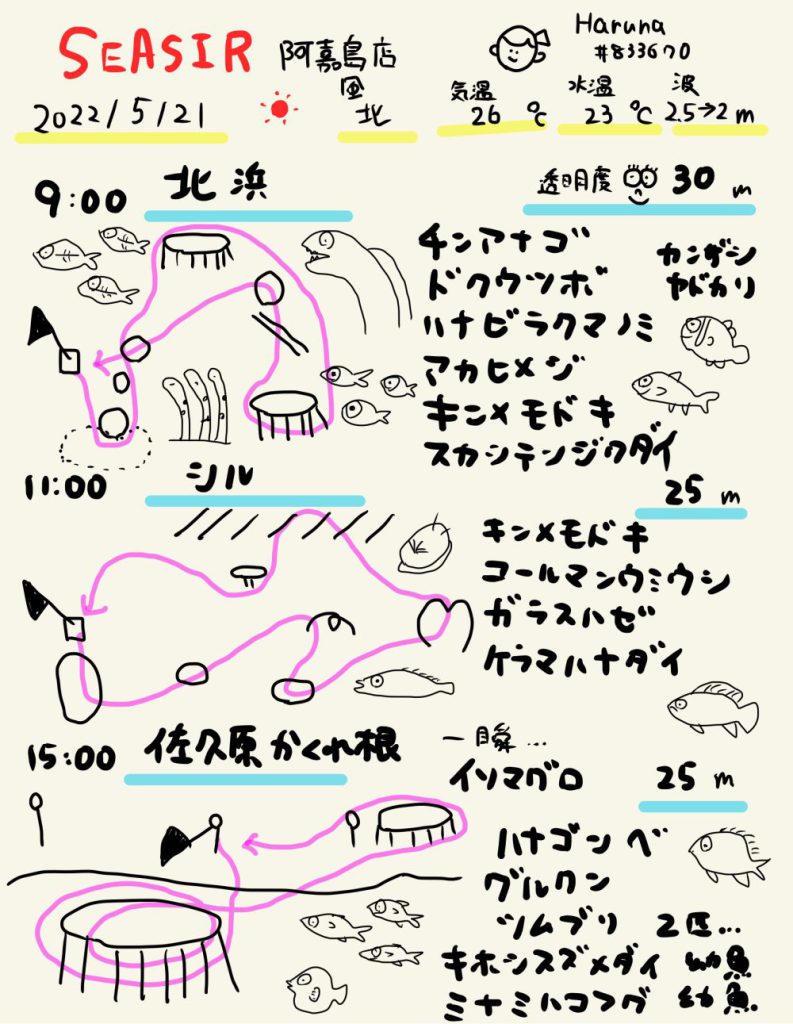 SEASIR 阿嘉島店
Haruna
#833670
2022/5/21
風
北
気温
26 ℃
水温
23 ℃
波
2.5→2 m
9:00 北浜
透明度 30 m
チンアナゴ
カンザシ
ヤドカリ
ドクウツボ
ハナビラクマノミ
アカヒメジ
キンメモドキ
スカシテンジクダイ
11:00 シル
25 m
キンメモドキ
コールマンウミウシ
ガラスハゼ
ケラマハナダイ
15:00 佐久原かくれ根
一瞬…
イソマグロ
25 m
ハナゴンベ
グルクン
ツムブリ 2匹…
キホシスズメダイ 幼魚
ミナミハコフグ 幼魚